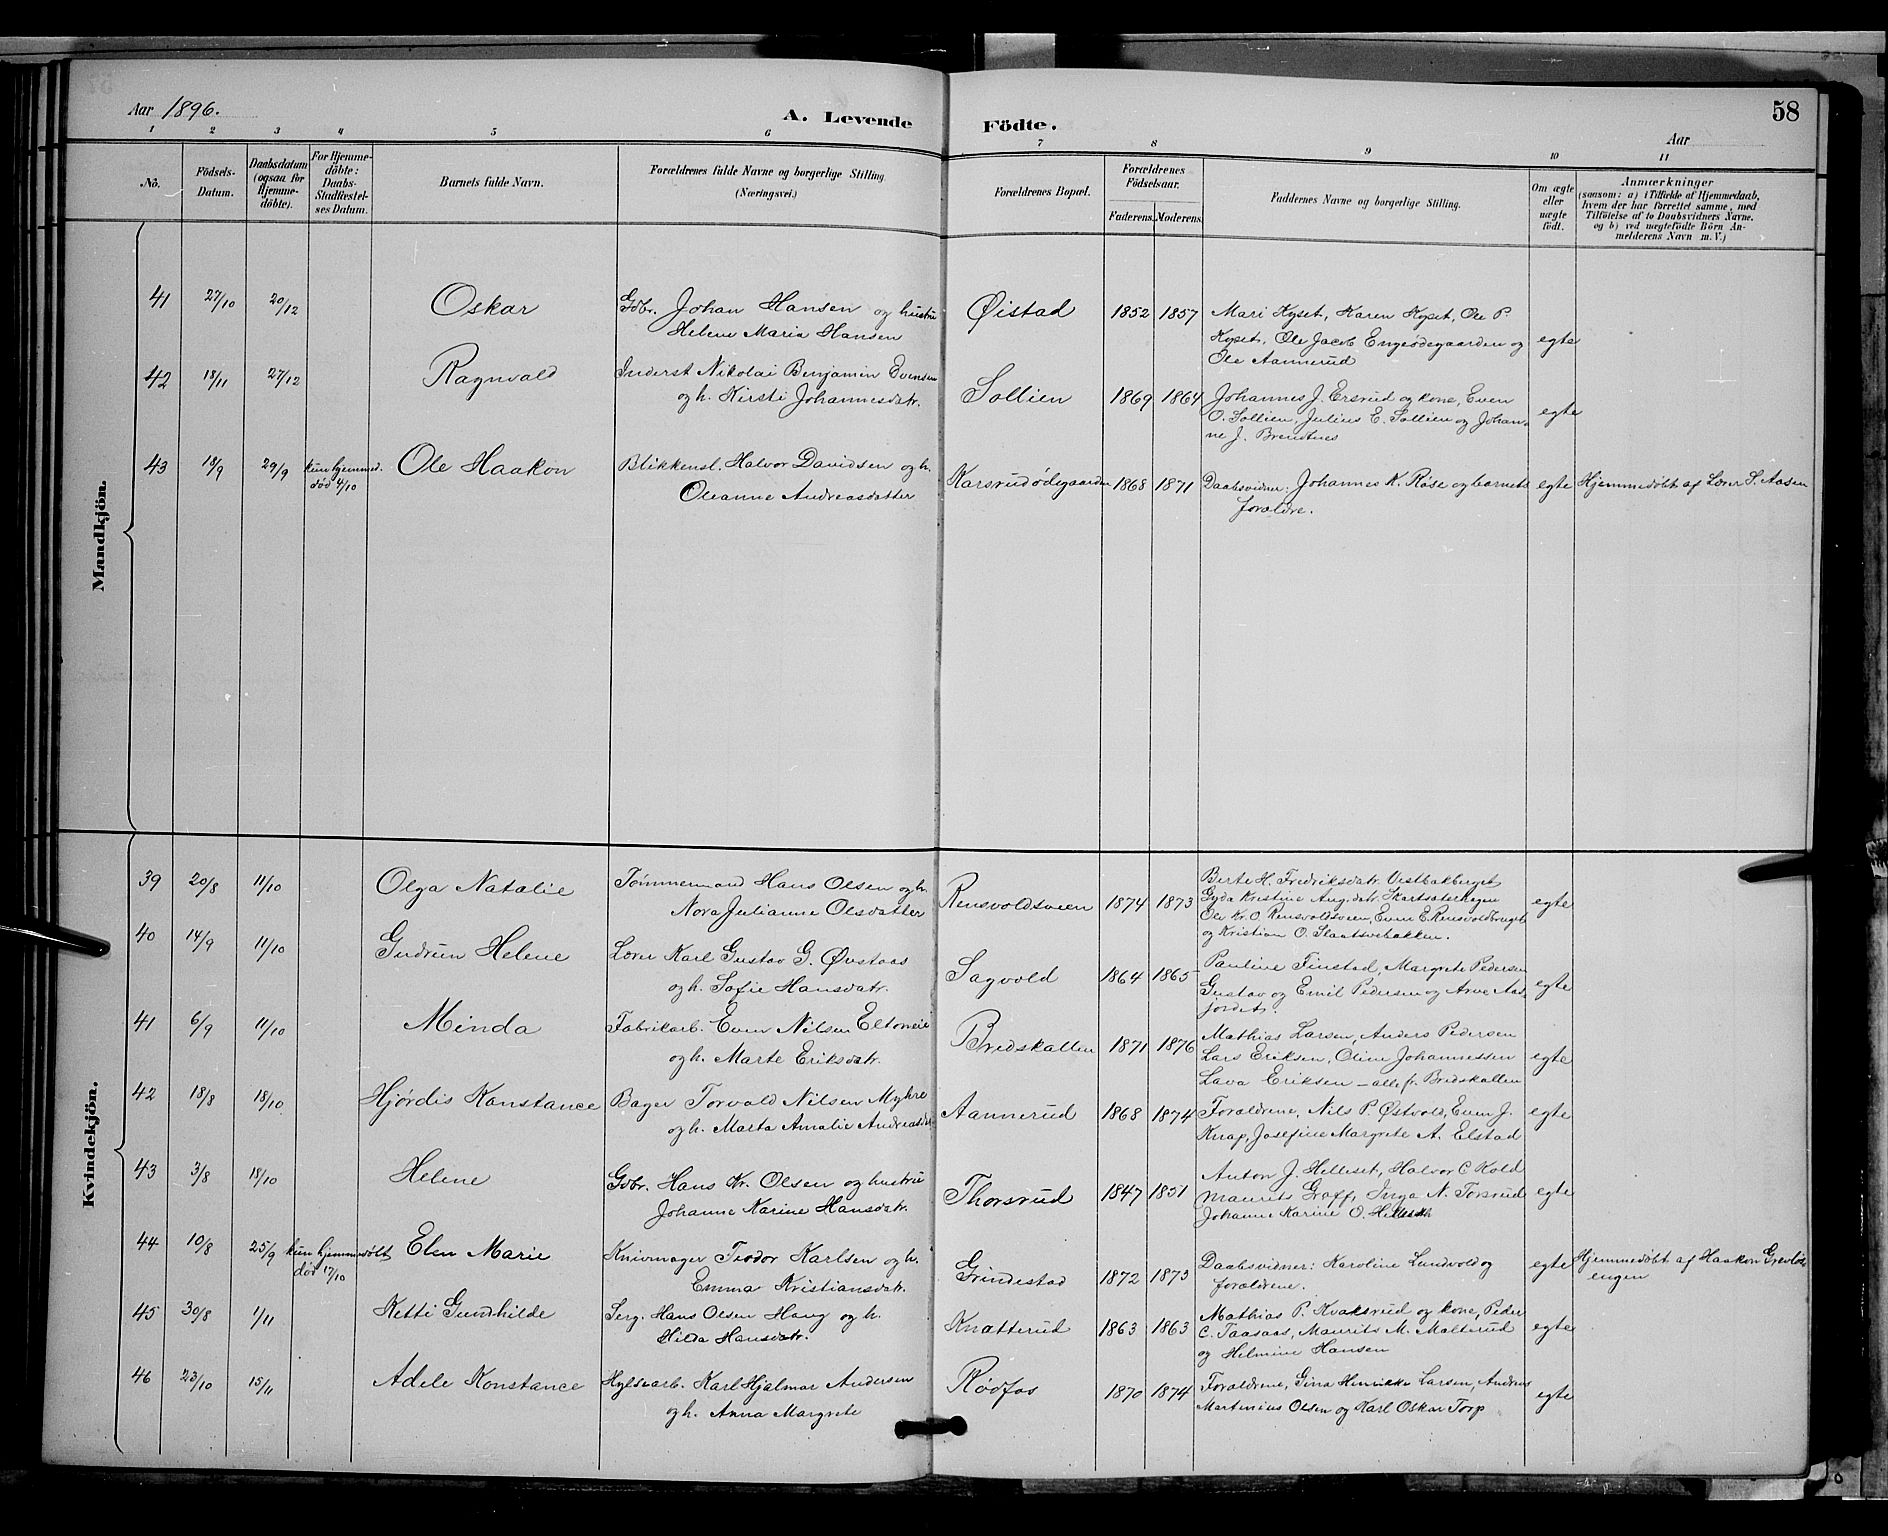 Aar 1896.
A. Levende Födte.
Aar
58
1 2 3 4 5 6 7 8 9 10 11
No.
Födsels-Datum.
Daabsdatum (ogsaa for Hjemme-döbte).
For Hjemme-döbte: Daabs-Stadfæstel-ses Datum.
Barnets fulde Navn.
Forældrenes fulde Navne og borgerlige Stilling (Næringsvei.)
Forældrenes Bopæl.
Forældrenes Födselsaar.
Faderens. Moderens.
Faddernes Navne og borgerlige Stilling.
Om ægte eller uægte födt.
Anmærkninger
(saasom: a) i Tilfælde af Hjemmedaab,
hvem der har forrettet samme, med
Tilföielse af to Daabsvidners Navne.
og b) ved uægtefödte Börn An-
melderens Navn m. V.)
Mandkjön.
41 27/10 20/12 Oskar Gbr. Johan Hansen og hustru Øistad 1852 1857 Mari Kyset, Karen Kyset, Ole P.
Helene Maria Hansen Kyset, Ole Jacob Engeødegaarden og egte
Ole Aannerud
42 18/11 27/12 Ragnvald Inderst Nikolai Benjamin Evensen Sollien 1869 1864 Johannes J. Ersrud og kone, Even
og h. Kirsti Johannesdatr. O. Sollien, Julius E. Sollien og Johan- egte
ne J. Brendtnes
43 18/9 29/9 kun hjemmed. Ole Haakon Blikkensl. Halvor Davidsen og h. Karsrudødegaarden 1868 1871 Daabsvidner: Johannes K. Røse og barnets egte Hjemmedøbt af Lærer S. Aasen
død 4/10 Oleanne Andreasdatter forældre.
Kvindekjön.
39 20/8 11/10 Olga Natalie Tømmermand Hans Olsen og h. Rensvoldsveien 1874 1873 Berte H. Fredriksdatr. Vestbakberget,
Nora Julianne Olsdatter Gyda Kristine Aug.datr. Skartsæterhagen egte
Ole Kr. O. Rensvoldsveien, Even E. Rensvoldbruget
og Kristian O. Slaatsvebakken.
40 14/9 11/10 Gudrun Helene Lærer Karl Gustav G. Øvstaas Sagvold 1864 1865 Pauline Finstad, Margrete Pedersen
og h. Sofie Hansdatr. Gustav og Emil Pedersen og Arve Aas- egte
jordet.
41 6/9 11/10 Minda Fabrikarb. Even Nilsen Eltoneie Bredskallen 1871 1876 Mathias Larsen, Anders Pedersen
og h. Marte Eriksdatr. Lars Eriksen, Oline Johannessen egte
Lava Eriksen – alle fr. Bredskallen
42 18/8 18/10 Hjørdis Konstance Bager Torvald Nilsen Myhre Aannerud 1868 1874 Forældrene, Nils P. Østvold, Even J. egte
og h. Marta Amalie Andreasdtr Knap, Josefine Margrete A. Elstad
43 3/8 18/10 Helene Gbr. Hans Kr. Olsen og hustru Thorsrud 1847 1851 Anton J. Helleset, Halvor C. Kold
Johanne Karine Hansdatr. Maurits Graff, Inga N. Torsrud egte
Johanne Karine O. Helleseth
44 10/8 25/9 kun hjemmedøbt Elen Marie Knivmager Teodor Karlsen og h. Grindestad 1872 1873 Daabsvidner: Karoline Lundvold og egte Hjemmedøbt af Haakon Grevløs-
død 17/10 Emma Kristiansdatr. forældrene. engen
45 30/8 1/11 Ketti Gundhilde Serg. Hans Olsen Haug og h. Knatterud 1863 1863 Mathias P. Kvaksrud og kone, Peder
Hilda Hansdatr. C. Taasaas, Maurits M. Malterud egte
og Helmine Hansen
46 23/10 15/11 Adele Konstance Hylsearb. Karl Hjalmar Andersen Rødfos 1870 1874 Forældrene, Gina Henrikke Larsen, Andreas egte
og h. Anna Margrete Martinius Olsen og Karl Oskar Torp